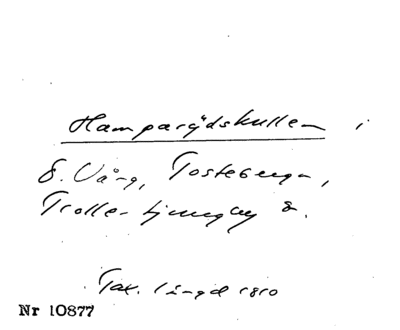 Hamparydskullen i
Ö. Vång, Tosteberga,
Trolle-Ljungby s.
Tax. längd 1810
Nr 10877